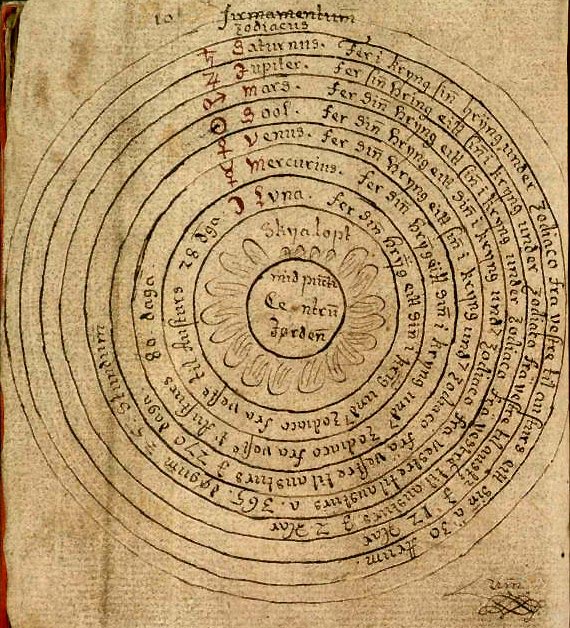 firmamentum
Zodiacus
♄ Saturnus. Fer i kryng sin hrijng under Zodiaco fra vestre til austurs eitt sin a 30 Arum.
♃ Jupiter. fer sin hring eitt sin i kryng under Zodiaco fra vestre til austurs 12 Aar
♂ mars. fer sin hryng eitt sin i kryng under Zodiaco fra vestre til austurs J 2 Aar
☉ Sool. fer sin hryng eitt sin i kryng und Zodiaco fra vestre til austurs a. 365. dagum 5. stundum
♀ Venus. fer sin hryng eitt sin i kryng und Zodiaco fra vestre til austurs J 270 daga
☿ Mercurius. fer sin hryg eitt sin i kryng und Zodiaco fra vestre til Austurs 80. daga
☽ Luna. fer sin hryg eitt sin i kring und Zodiaco fra vestre til Austurs 28 dga.
Skyalopt
mid punct
Centru
Jorden
um